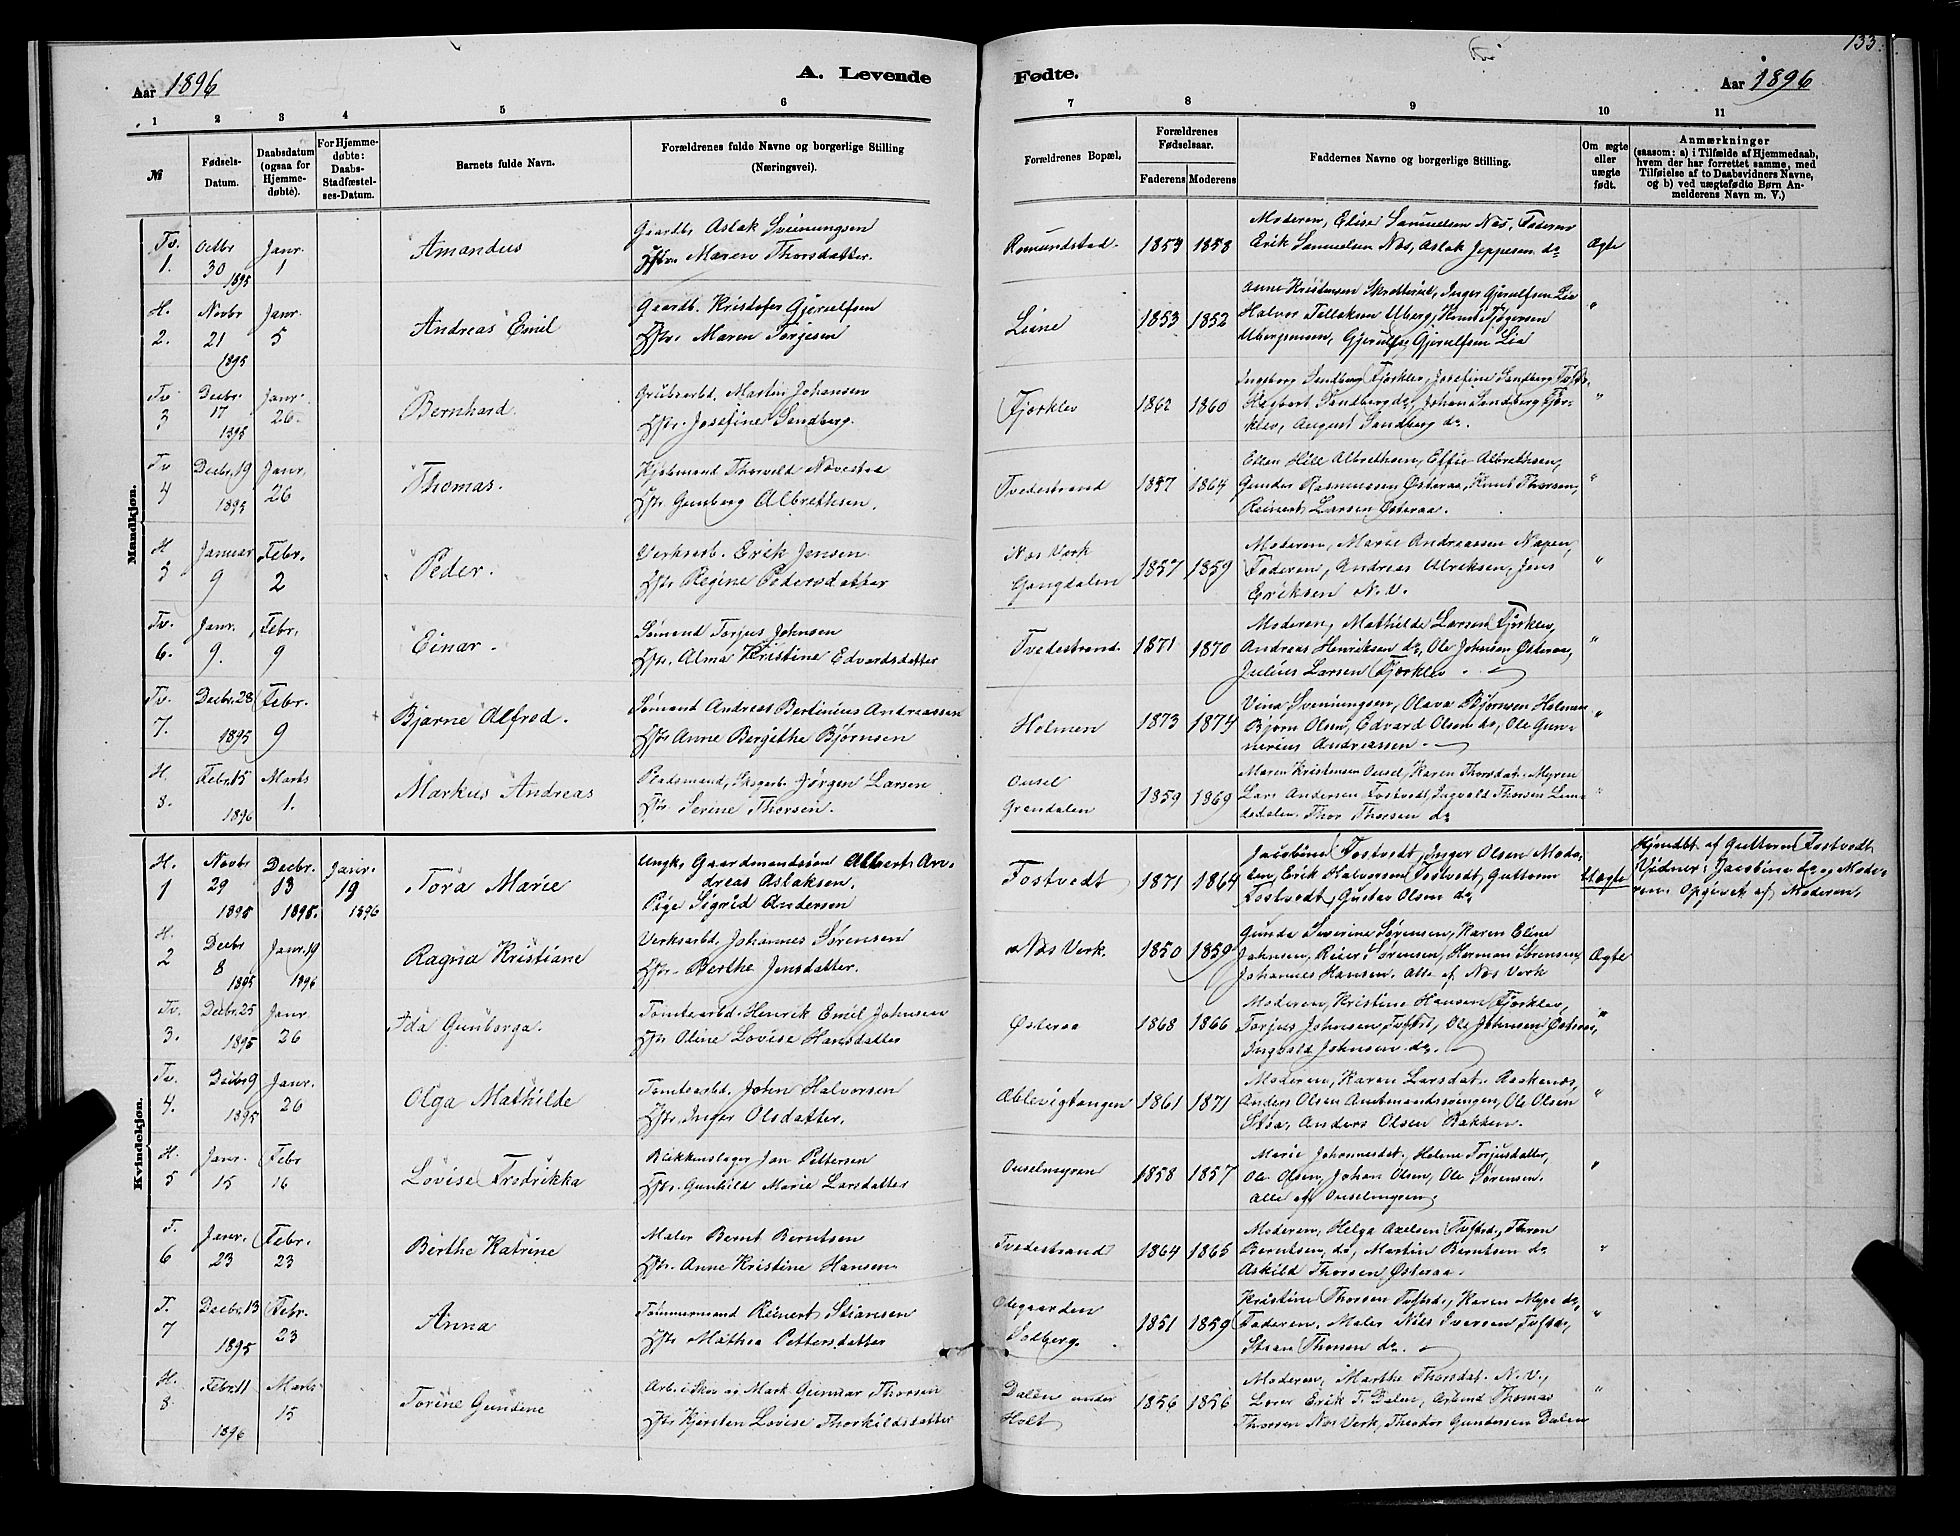 133.
Aar 1896 A. Levende Fødte. Aar 1896
1 2 3 4 5 6 7 8 9 10 11
№ Fødsels-Datum. Daabsdatum (ogsaa for Hjemmedøbte). For Hjemmedøbte: Daabs-Stadfæstelses-Datum. Barnets fulde Navn. Forældrenes fulde Navne og borgerlige Stilling (Næringsvei). Forældrenes Bopæl. Forældrenes Fødselsaar. Faderens Moderens Faddernes Navne og borgerlige Stilling. Om ægte eller uægte født. Anmærkninger (saasom: a) i Tilfælde af Hjemmedaab, hvem der har forrettet samme, med Tilføielse af to Daabsvidners Navne, og b) ved uægtefødte Børn Anmelderens Navn m. V.)
Mandkjøn.
Tv. 1. Octbr 30 1895 Janr. 1 Amandus Gaardbr. Aslak Sveinungsen Hstr. Maren Thorsdatter. Romundstad. 1854 1858 Moderen, Elise Samuelsen Næs, Faderen Erik Samuelsen Næs, Aslak Jeppesen do Ægte
H. 2. Novbr 21 1895 Janr. 5 Andreas Emil Gaardb. Kristofer Gjerulfsen Hstr. Maren Torjesen Liene 1853 1852 Anne Kristensen Inger Gjerulfsen Lia Halvor Tellaksen Uberg, Knut Gjerulf Gjerulfsen Lia "
Tv 3 Decbr. 17 1895 Janr. 26. Bernhard. Grubearbd. Martin Johansen Hstr. Josefine Sandberg. Fjærklev 1862 1860 Ingeborg Sandberg Fjorklev, Josefine Sandberg Hagbart Sandberg do, Johan Sandberg Fjorklev, August Sandberg do. "
Tv 4 Decbr. 19 1895 Janr. 26 Thomas. Kjøbmand Thorvald Nævestaa Hstr Gunborg Albrethsen. Tvedestrand 1857 1864 Ellen Albrethsen, Effie Albrethsen, Gunder Rasmussen Østeraa, Knut Thorsen, Reinert Larsen Østeraa. "
H 5 Januar 9 Febr. 2 Peder. Verksarb. Erik Jensen Hstr Regine Pedersdatter Næs Verk Gangdalen 1857 1859 Moderen, Marie Andreassen Faderen, Andreas Ulriksen, Jens Eriksen N. V. "
Tv. 6. Janr. 9. Febr. 9 Einar. Sømand Torjus Johnsen Hstr. Alma Kristine Edvardsdatter Tvedestrand. 1871 1870 Moderen, Mathilde Larsen Fjorklev, Andreas Henriksen do, Ole Johnsen Østeraa, Julius Larsen Fjorklev. "
Tv. 7. Decbr. 28 1895 Febr. 9 Bjarne Alfred. Sømand Andreas Bertinius Andreassen Hstr Anne Bergithe Bjørnsen Holmen 1873 1874 Vina Sveinungsen, Olava Bjørnsen Holmen Bjørn Olsen, Edvard Olsen do, Ole Gunnerius Andreassen. "
H. 8. Febr. 15 1896 Marts 1. Markus Andreas Pladsmand, Skogarb. Jørgen Larsen Hstr. Serine Thorsen. Ousel Grendalen 1859 1869 Maren Kristensen Ousel, Karen Thorsdat. Myren Lars Andersen Fostvedt, Ingvald Thorsen Thor Thorsen do "
Kvindekjøn.
H. 1 Novbr 29 1895 Decbr. 13 1895. Janr. 19 1896 Tora Marie Ungk. Gaardmandssøn Albert Andreas Aslaksen. Pige Sigrid Andersen Fostvedt 1871 1864 Jacobine Fostvedt, Inger Olsen Erik Halvorsen Fostvedt, Guttorm Fostvedt, Gustav Olsen do, Uægte Hjemdbt. af Guttorm Fostvedt. Vidner: Jacobine do. og Moderen. Opgivet af Moderen.
H. 2 Decbr 8 1895 Janr. 19 1896 Ragna Kristiane Verksarbd. Johannes Sørensen Hstr. Berthe Jensdatter. Næs Verk. 1850 1859 Gunda Severine Sørensen, Karen Eline Johnsen, Reier Sørensen, Herman Sørensen, Johannes Hansen. Alle af Næs Verk Ægte
Tv. 3. Decbr. 25 1895 Janr. 26 Ida Gunborga. Tomtearbd. Henrik Emil Johnsen Hstr Oline Lovise Hansdatter Østeraa 1868 1866 Moderen, Kristine Hansen Fjorklev, Torjus Johnsen, Tvfstd, Ole Johnsen Østeraa, Ingvald Johnsen do. "
Tv. 4. Decbr 9 1895 Janr. 26 Olga Mathilde Tomtearbd. John Halvorsen Hstr. Inger Olsdatter. Ablevigtangen 1861 1871 Moderen, Karen Larsdat. Aaskenæs, Anders Olsen Ole Olsen Støa, Anders Olsen Bakken. "
H. 5 Janr. 15 Febr 16 Lovise Fredrikka Blikkenslager Jon Pettersen Hstr. Gunhild Marie Larsdatter Ouselmyren 1858 1857 Marie Johannesdat. Helene Torjusdatter, Ole Olsen, Johan Olsen, Ole Sørensen. Alle af Ouselmyren. "
T. 6 Janr. 23 Febr. 23 Berthe Katrine Maler Bernt Berntsen Hstr. Anne Kristine Hansen Tvedestrand 1864 1865 Moderen, Helga Axelsen Tvfstd., Thron Berntsen, do, Martin Berntsen do Askild Thorsen Østeraa. "
T. 7 Decbr. 13 1895 Febr. 23 Anna Tømmermand Reinert Stiansen Hstr Mathea Pettersdatter Ødegaarden Sødberg. 1851 1859 Kristine Thorsen Tvfstd., Karen Myre do, Faderen, Maler Nils Iversen Tvfstd., Stian Thorsen do. "
H. 8 Febr. 11 1896 Marts 15 Torine Gundine Arb. i Skov og Mark Gunnar Thorsen Hstr Kjersten Lovise Thorkildsdatter Dalen under Holt 1856 1856 Moderen, Marthe Thorsdat. N. V., Lærer Erik T. Dalen, Arbmd Thomas Thorsen Næs Verk, Theodor Gundersen Dalen "